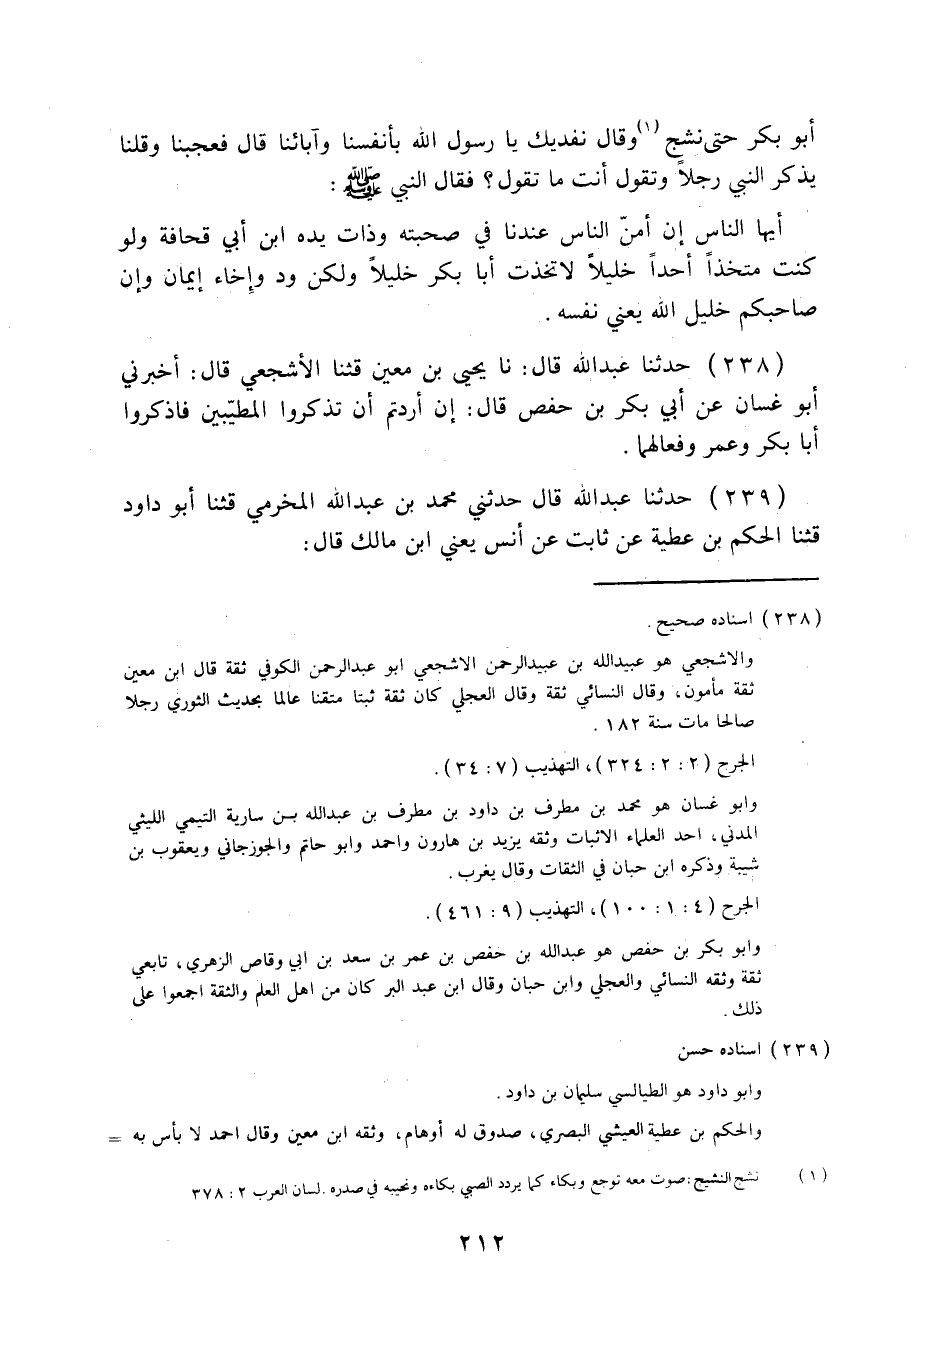 أبو بكر حتى نشج (١) وقال نفديك يا رسول الله بأنفسنا وآبائنا قال فعجبنا وقلنا
يذكر النبي رجلاً وتقول أنت ما تقول؟ فقال النبي ﷺ :
أيها الناس إن أمنّ الناس عندنا في صحبته وذات يده ابن أبي قحافة ولو
كنت متخذاً أحداً خليلاً لاتخذت أبا بكر خليلاً ولكن ود وإخاء إيمان وإن
صاحبكم خليل الله يعني نفسه .
(٢٣٨) حدثنا عبدالله قال: نا يحيى بن معين قثنا الأشجعي قال: أخبرني
أبو غسان عن أبي بكر بن حفص قال: إن أردتم أن تذكروا المطيّبين فاذكروا
أبا بكر وعمر وفعالهما .
(٢٣٩) حدثنا عبدالله قال حدثني محمد بن عبدالله المخرمي قثنا أبو داود
قثنا الحكم بن عطية عن ثابت عن أنس يعني ابن مالك قال:
(٢٣٨) اسناده صحيح .
والاشجعي هو عبيدالله بن عبيدالرحمن الاشجعي ابو عبدالرحمن الكوفي ثقة قال ابن معين
ثقة مأمون، وقال النسائي ثقة وقال العجلي كان ثقة ثبتا متقنا عالما بحديث الثوري رجلا
صالحا مات سنة ١٨٢ .
الجرح (٢ : ٢ : ٣٢٤)، التهذيب (٧ : ٣٤) .
وابو غسان هو محمد بن مطرف بن داود بن مطرف بن عبدالله بن سارية التيمي الليثي
المدني، احد العلماء الاثبات وثقه يزيد بن هارون واحمد وابو حاتم والجوزجاني ويعقوب بن
شيبة وذكره ابن حبان في الثقات وقال يغرب .
الجرح (٤ : ١ : ١٠٠)، التهذيب (٩ : ٤٦١) .
وابو بكر بن حفص هو عبدالله بن حفص بن عمر بن سعد بن ابي وقاص الزهري، تابعي
ثقة وثقه النسائي والعجلي وابن حبان وقال ابن عبد البر كان من اهل العلم والثقة اجمعوا على
ذلك .
(٢٣٩) اسناده حسن
وابو داود هو الطيالسي سليمان بن داود .
والحكم بن عطية العيشي البصري، صدوق له أوهام، وثقه ابن معين وقال احمد لا بأس به =
(١) نشج النشيج: صوت معه توجع وبكاء كما يردد الصبي بكاءه ونحيبه في صدره . لسان العرب ٢ : ٣٧٨
٢١٢